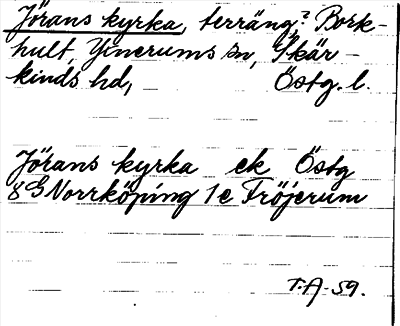 Jörans kyrka, terräng? Bork-
hult, Yxnerums sn, Skär-
kinds hd, Östg. l.
Jörans kyrka ek Östg
8G Norrköping 1e Fröjerum
T.A-59.